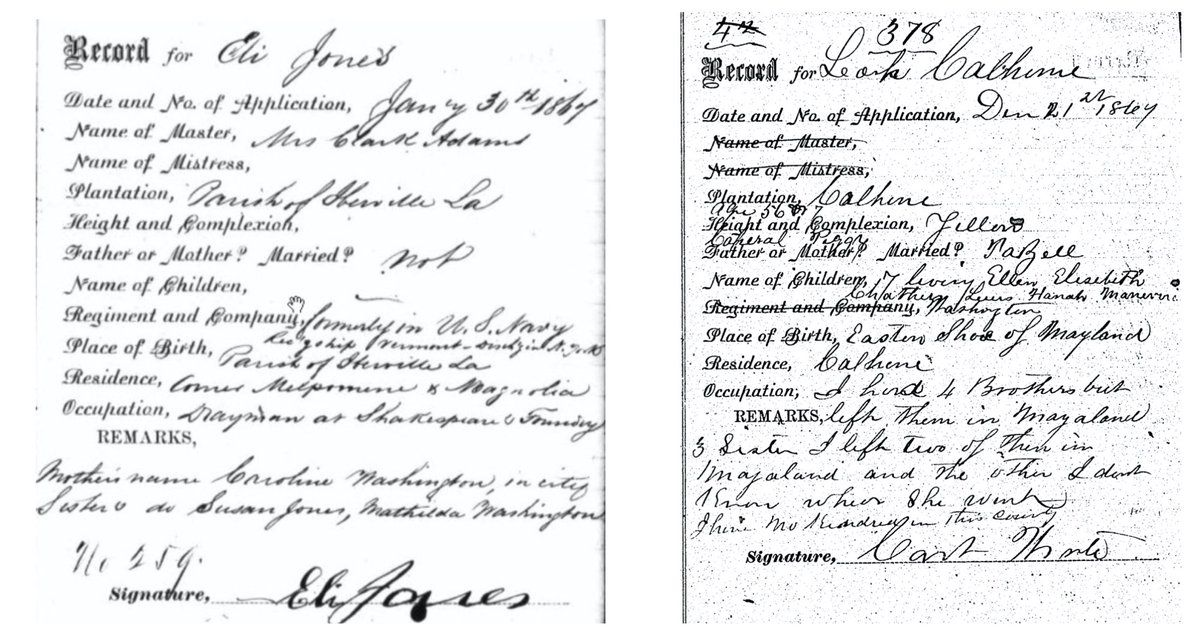 Record for Eli Jones
Date and No. of Application, Jany 30th 1867
Name of Master, Mrs Clark Adams
Name of Mistress,
Plantation, Parish of Iberville La
Height and Complexion,
Father or Mother? Married? not
Name of Children,
Regiment and Company, formerly in U. S. Navy
ship Vermont
Place of Birth, Parish of Iberville La
Residence, Corner Melpomene & Magnolia
Occupation, Drayman at Shakespeare's Foundry
REMARKS,
Mother's name Caroline Washington, in city
Sisters do Susan Jones, Mathilda Washington
No 259.
Signature, Eli Jones
42
378
Record for Calhenie
Date and No. of Application, 21 1867
Name of Master,
Name of Mistress,
Plantation, Calhene
Age 56
Height and Complexion, Yellow
Father or Mother? Married?
Name of Children, 7 living Ellen Elisebeth
Hanah
Regiment and Company, Washington
Place of Birth, Eastern Shoe of Mayland
Residence, Calhene
Occupation, I had 4 Brothers but
REMARKS, left them in Mayaland
3 Sister I left two of them in
Mayaland and the other I dont
Know whear She went
I have no Kindred in this County
Signature,